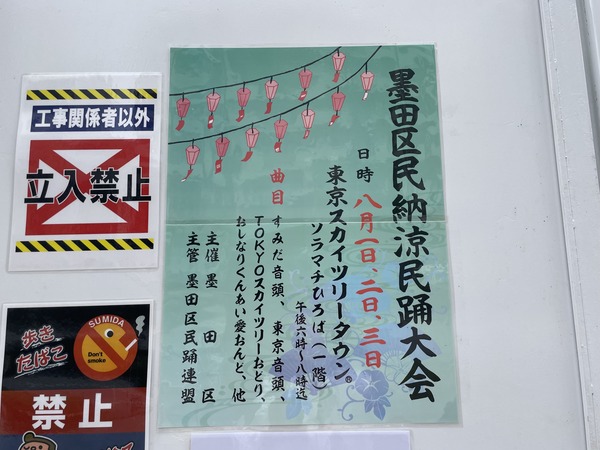 墨田区民納涼民踊大会
日時 八月一日、二日、三日
東京スカイツリータウン®
ソラマチひろば(一階)
午後六時〜八時迄
曲目 すみだ音頭、東京音頭、
TOKYOスカイツリーおどり、
おしなりくんあい愛おんと、他
主催 墨田区
主管 墨田区民踊連盟
工事関係者以外
立入禁止
歩き
たばこ
SUMIDA
Don't
smoke
禁止